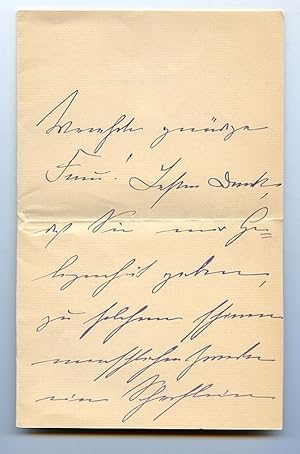 Verehrte gnädige
Frau! Besten Dank,
daß Sie mir Ge-
legenheit geben,
zu solchem schönen
menschlichen Zwecke
ein Scherflein